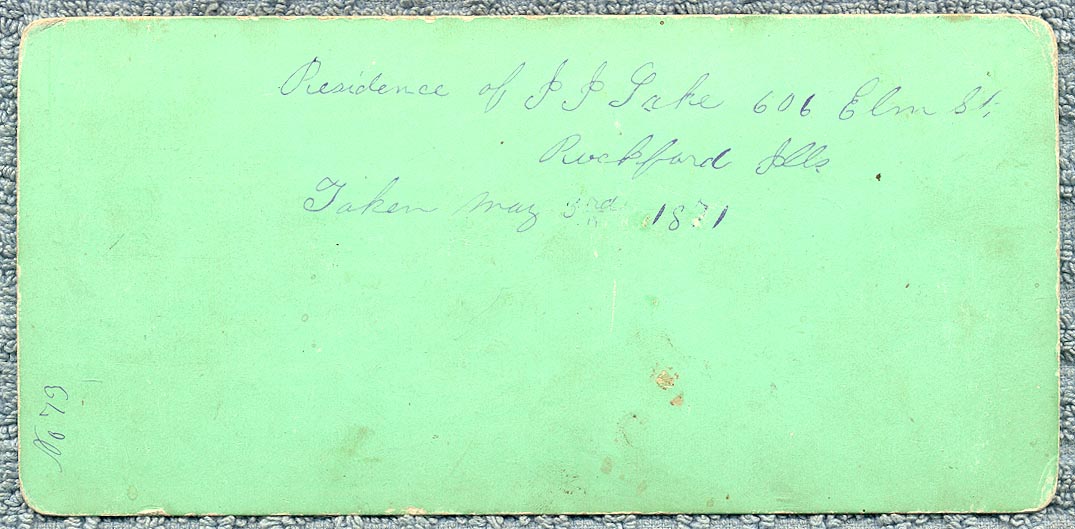 Residence of J J Lake 606 Elm St.
Rockford Ills
Taken May 3rd 1871
No 79